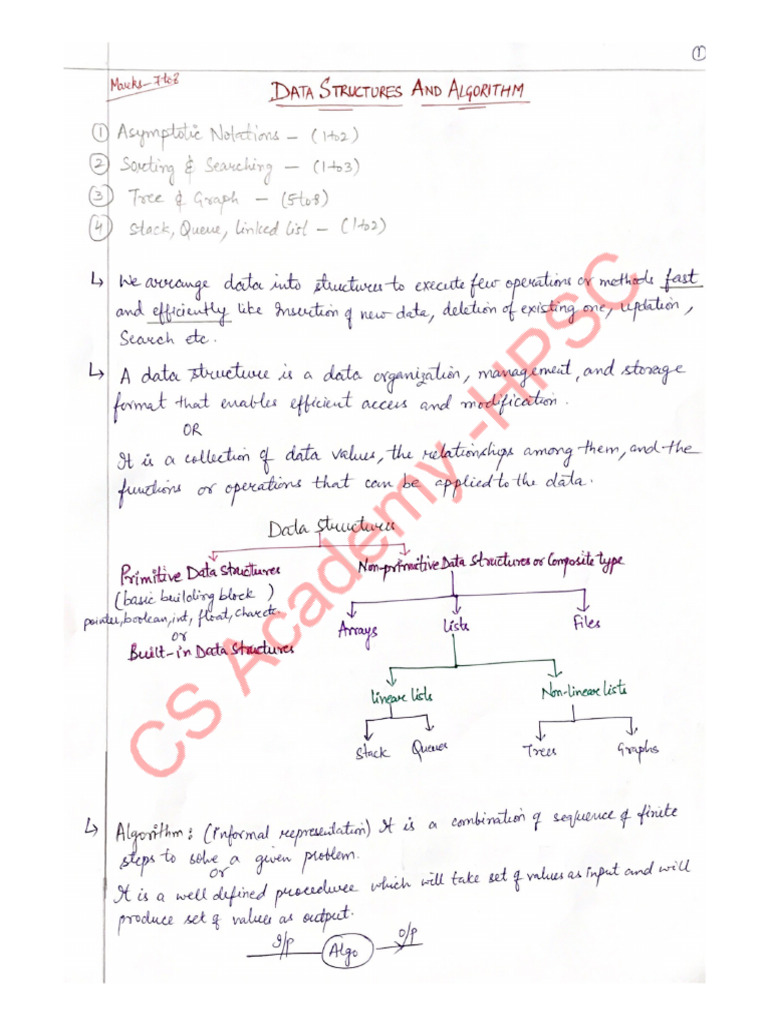 ①
Marks-7to8
DATA STRUCTURES AND ALGORITHM
① Asymptotic Notations – (1to2)
② Sorting & Searching – (1to3)
③ Tree & Graph – (5to8)
④ Stack, Queue, Linked list – (1to2)
↳ We arrange data into structures to execute few operations or methods fast
and efficiently like Insertion of new data, deletion of existing one, updation,
Search etc.
↳ A data structure is a data organization, management, and storage
format that enables efficient access and modification.
OR
It is a collection of data values, the relationships among them, and the
functions or operations that can be applied to the data.
Data Structures
Primitive Data Structures
(basic building block )
pointer, boolean, int, float, char etc.
or
Built-in Data Structures
Non-primitive Data Structures or Composite type
Arrays Lists Files
Linear lists Non-linear lists
Stack Queues Trees Graphs
↳ Algorithm: (Informal representation) It is a combination of sequence of finite
steps to solve a given problem.
or
It is a well defined procedure which will take set of values as input and will
produce set of values as output.
I/p Algo O/p
CS Academy -HPSC